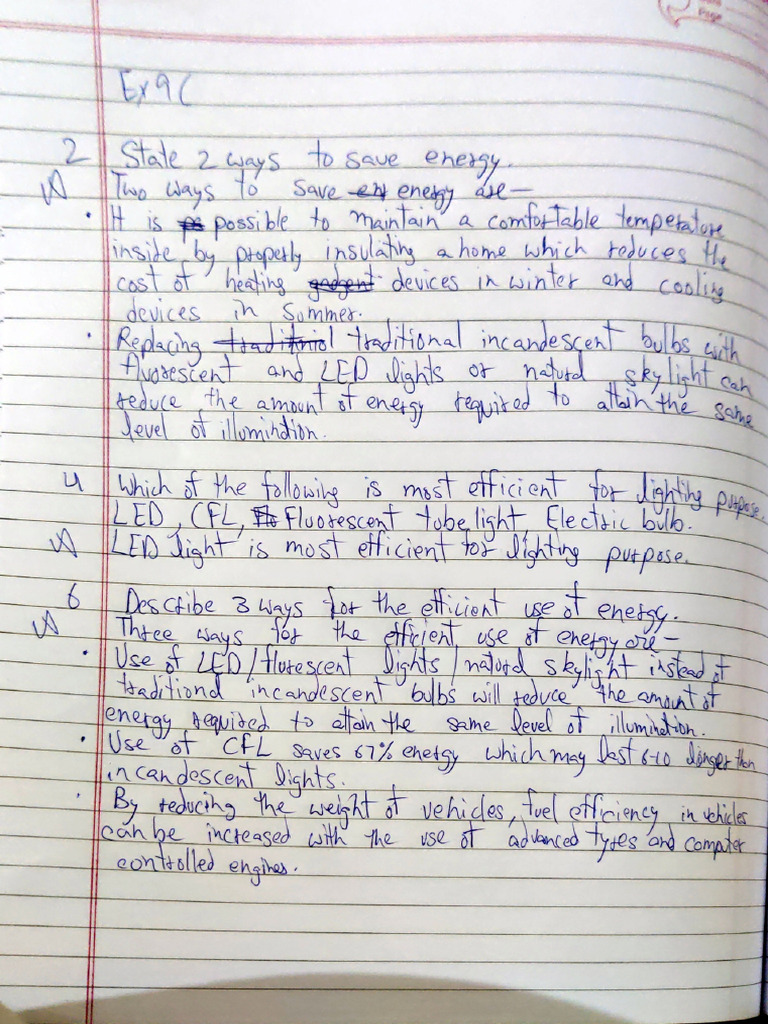 Page
Ex 9 C
2 State 2 ways to save energy.
A Two ways to save energy are—
• It is possible to maintain a comfortable temperature
inside by properly insulating a home which reduces the
cost of heating devices in winter and cooling
devices in summer.
• Replacing traditional incandescent bulbs with
fluorescent and LED lights or natural skylight can
reduce the amount of energy required to attain the same
level of illumindion.
4 Which of the following is most efficient for lighting purpose.
LED, CFL, Fluorescent tube light, Electric bulb.
A LED light is most efficient for lighting purpose.
6 Describe 3 ways for the efficient use of energy.
A Three ways for the efficient use of energy are—
• Use of LED/florescent lights/natural skylight instead of
traditional incandescent bulbs will reduce the amount of
energy required to attain the same level of illumination.
• Use of CFL saves 67% energy which may last 6-10 longer than
incandescent lights.
• By reducing the weight of vehicles, fuel efficiency in vehicles
can be increased with the use of advanced tyres and computer
controlled engines.